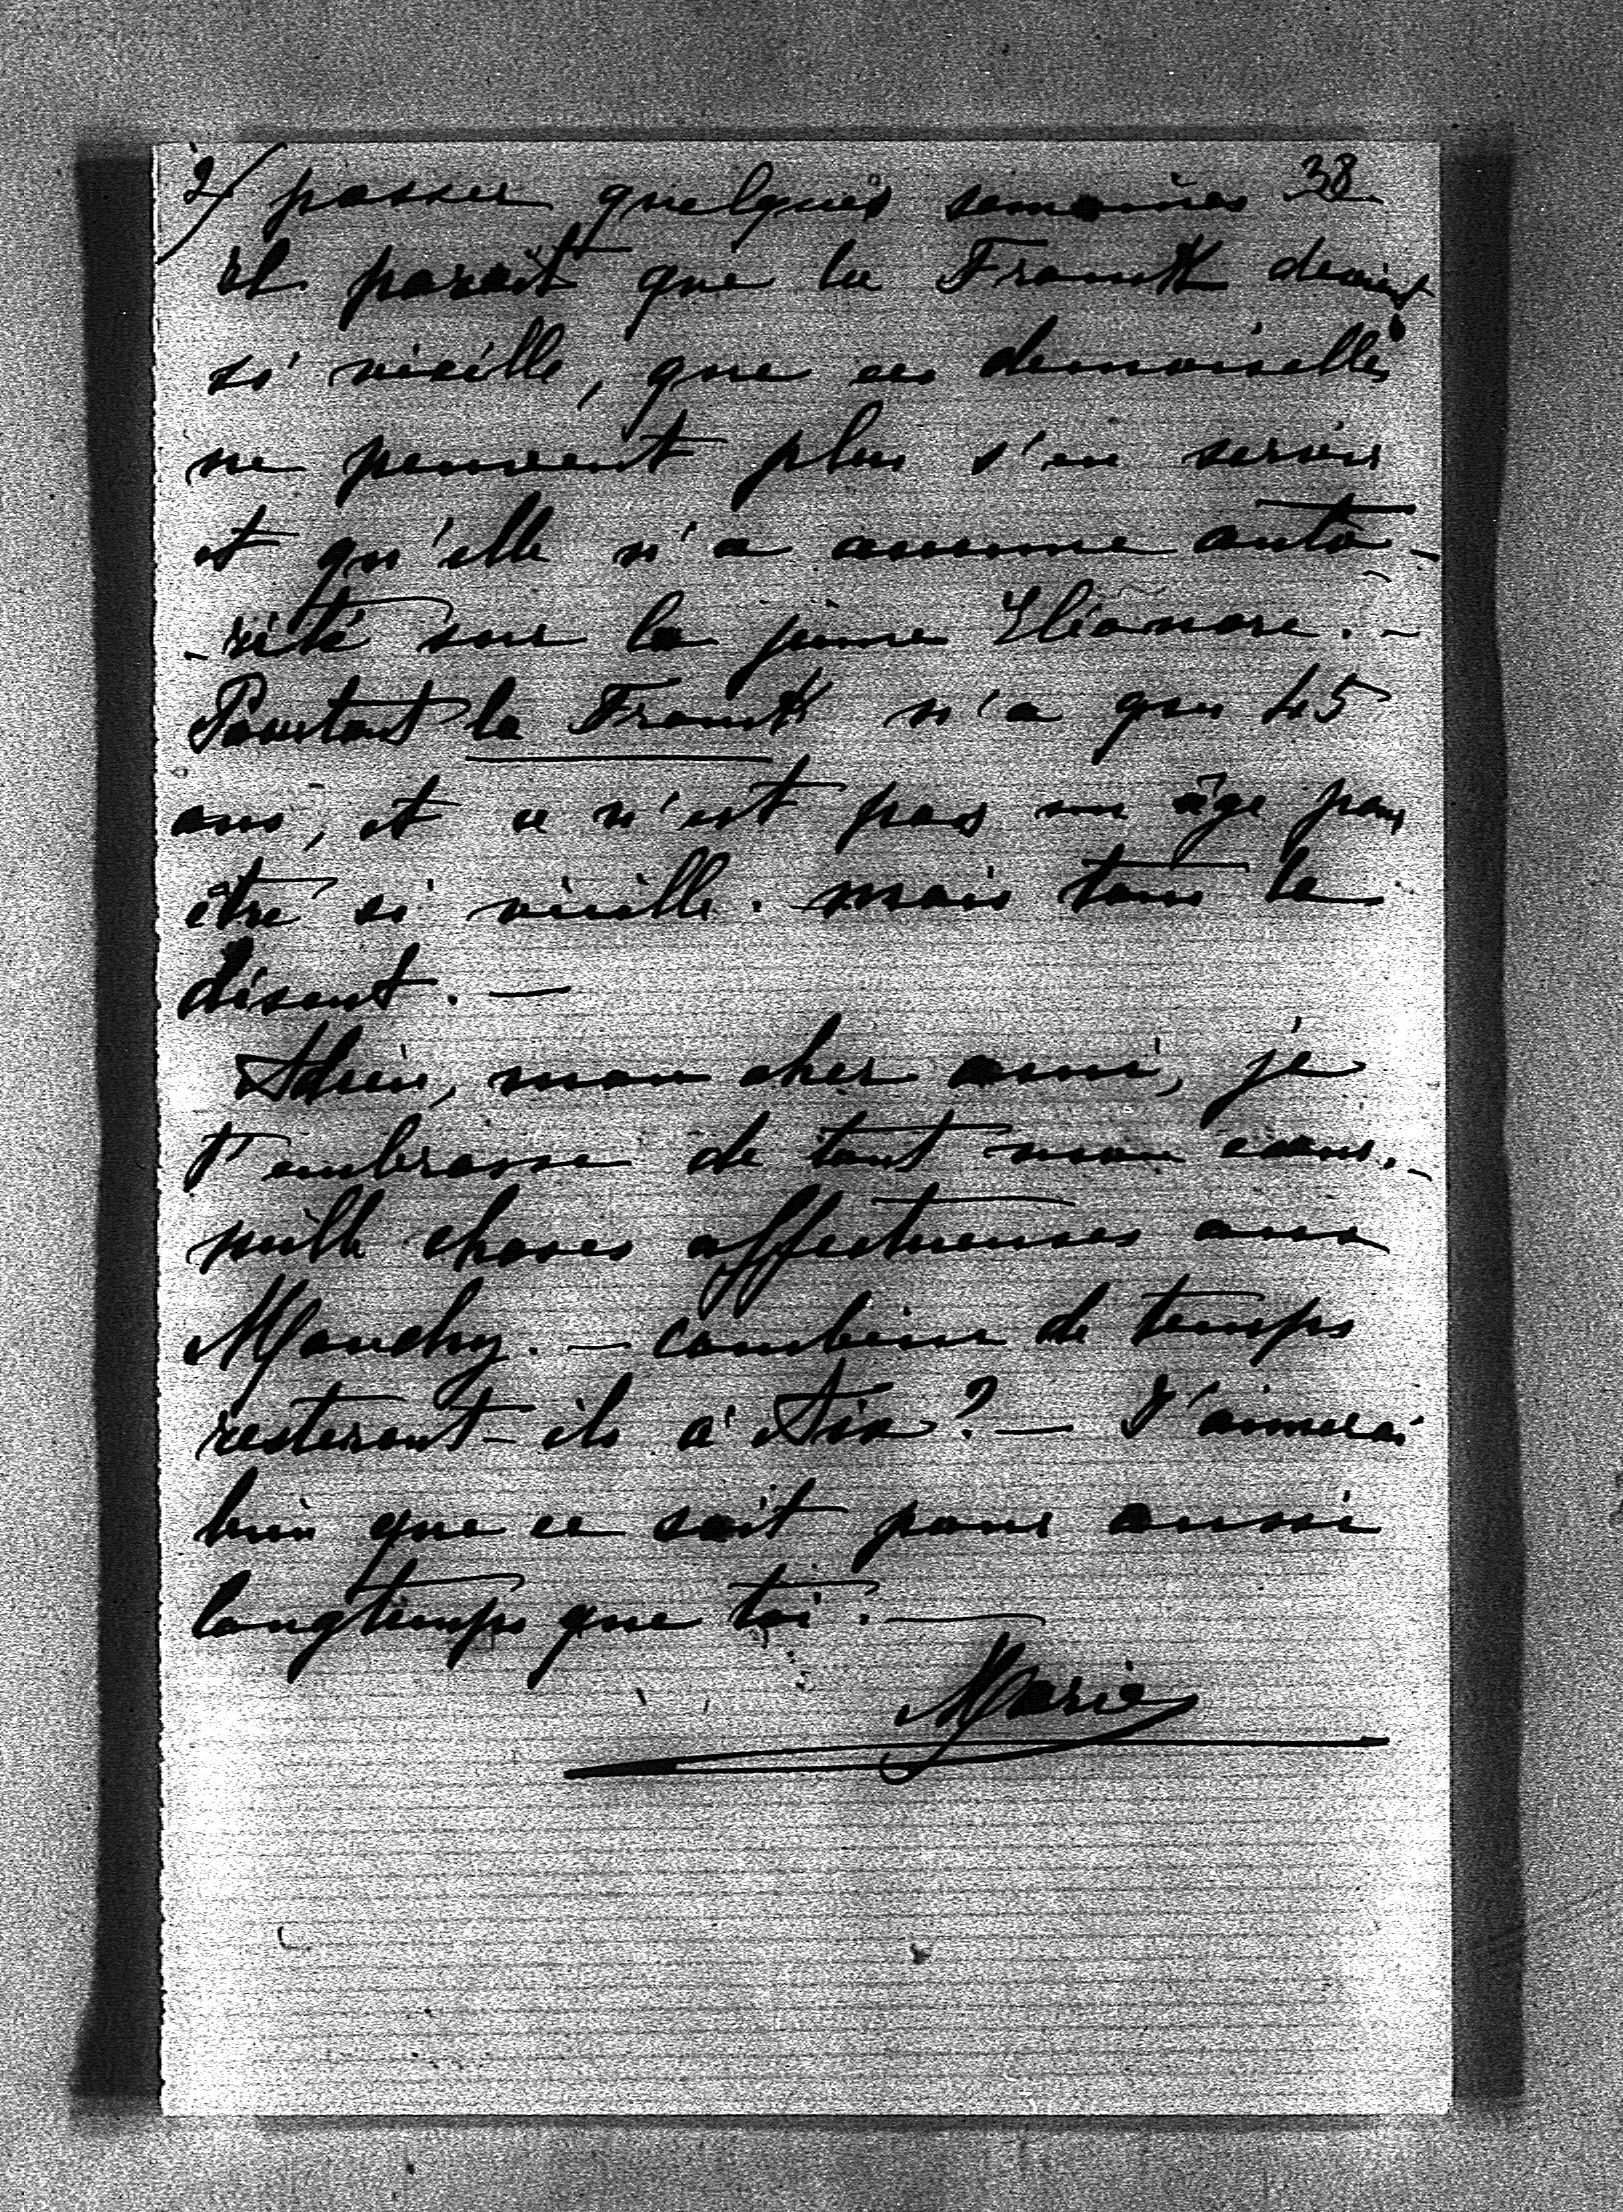 2/ passer quelques semaines 38
Il parait que la Frantk devient
si vieille, que ces demoiselles
ne peuvent plus s'en servir
et qu'elle n'a aucune auto-
-rité sur la jeune Eléonore. -
Pourtant la Frantk n'a que 45
ans, et ce n'est pas un âge pour
être si vieille. mais tous le
disent. —
Adrien, mon cher ami, je
t'embrasse de tout mon cœur. -
mille choses affectueuses aux
Mouchy. — combien de temps
resteront-ils à Aix? — J'aimerai
bien que ce soit pour aussi
longtemps que toi. —
Marie